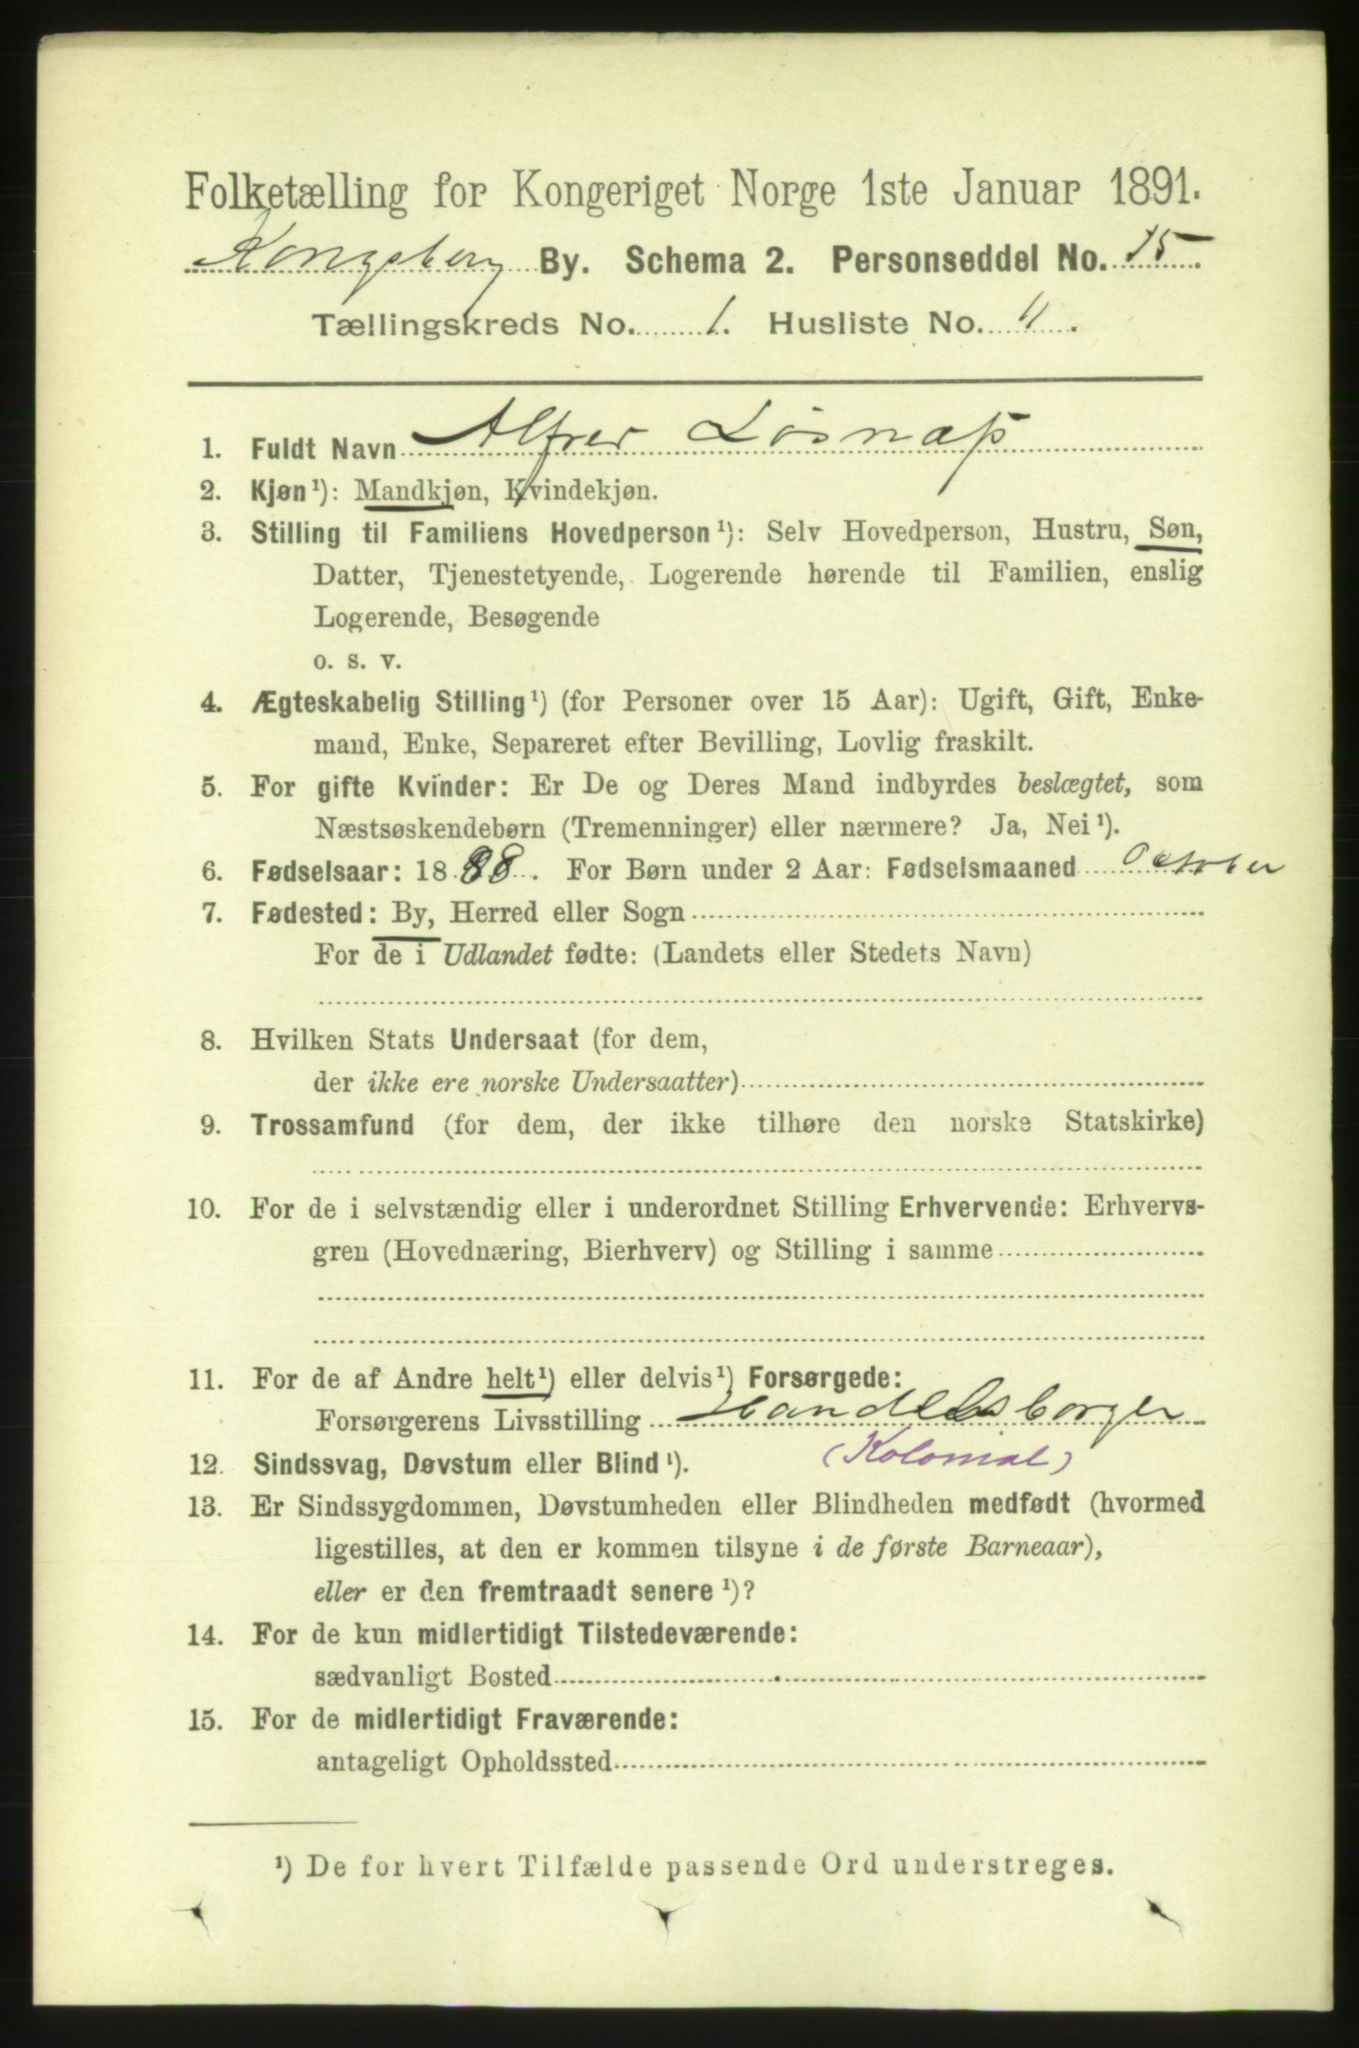 Folketælling for Kongeriget Norge 1ste Januar 1891.
Kongsberg By. Schema 2. Personseddel No. 15.
Tællingskreds No. 1. Husliste No. 11.
1. Fuldt Navn Alfred Løsnæs
2. Kjøn¹): Mandkjøn, Kvindekjøn.
3. Stilling til Familiens Hovedperson¹): Selv Hovedperson, Hustru, Søn,
Datter, Tjenestetyende, Logerende hørende til Familien, enslig
Logerende, Besøgende
o. s. v.
4. Ægteskabelig Stilling¹) (for Personer over 15 Aar): Ugift, Gift, Enke-
mand, Enke, Separeret efter Bevilling, Lovlig fraskilt.
5. For gifte Kvinder: Er De og Deres Mand indbyrdes beslægtet, som
Næstsøskendebørn (Tremenninger) eller nærmere? Ja, Nei¹).
6. Fødselsaar: 1888. For Børn under 2 Aar: Fødselsmaaned October
7. Fødested: By, Herred eller Sogn
For de i Udlandet fødte: (Landets eller Stedets Navn)
8. Hvilken Stats Undersaat (for dem,
der ikke ere norske Undersaatter)
9. Trossamfund (for dem, der ikke tilhøre den norske Statskirke)
10. For de i selvstændig eller i underordnet Stilling Erhvervende: Erhvervs-
gren (Hovednæring, Bierhverv) og Stilling i samme
11. For de af Andre helt¹) eller delvis¹) Forsørgede:
Forsørgerens Livsstilling Handelsborger
(Kolonial)
12. Sindssvag, Døvstum eller Blind¹).
13. Er Sindssygdommen, Døvstumheden eller Blindheden medfødt (hvormed
ligestilles, at den er kommen tilsyne i de første Barneaar),
eller er den fremtraadt senere¹)?
14. For de kun midlertidigt Tilstedeværende:
sædvanligt Bosted
15. For de midlertidigt Fraværende:
antageligt Opholdssted
¹) De for hvert Tilfælde passende Ord understreges.